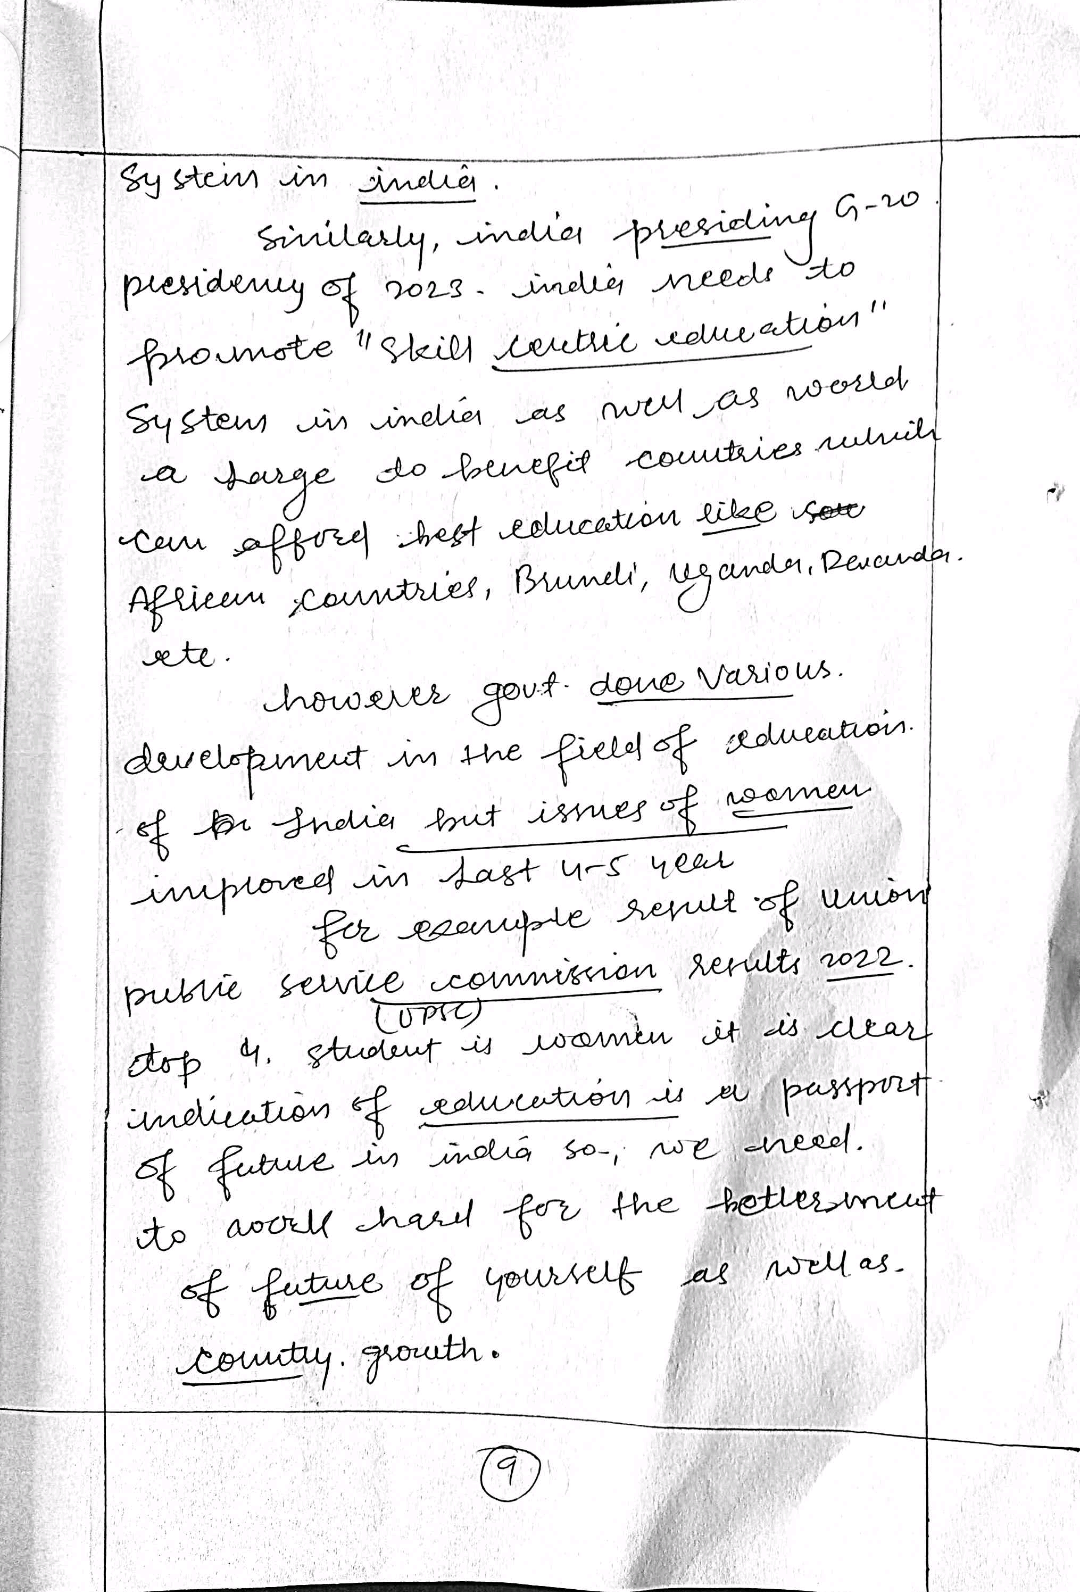 System in india.
Similarly, india presiding G-20
presidency of 2023. india needs to
promote "Skill centric education"
System in india as well as world
a large to benefit countries which
can afford best education like
African countries, Brundi, Uganda, Rwanda.
etc.
however govt. done various.
development in the field of education.
of India but issues of women
improved in last 4-5 year
for example result of union
public service commission results 2022.
(UPSC)
top 4. student is women it is clear
indication of education is a passport
of future in india so, we need.
to work hard for the betterment
of future of yourself as well as.
country. growth.
9